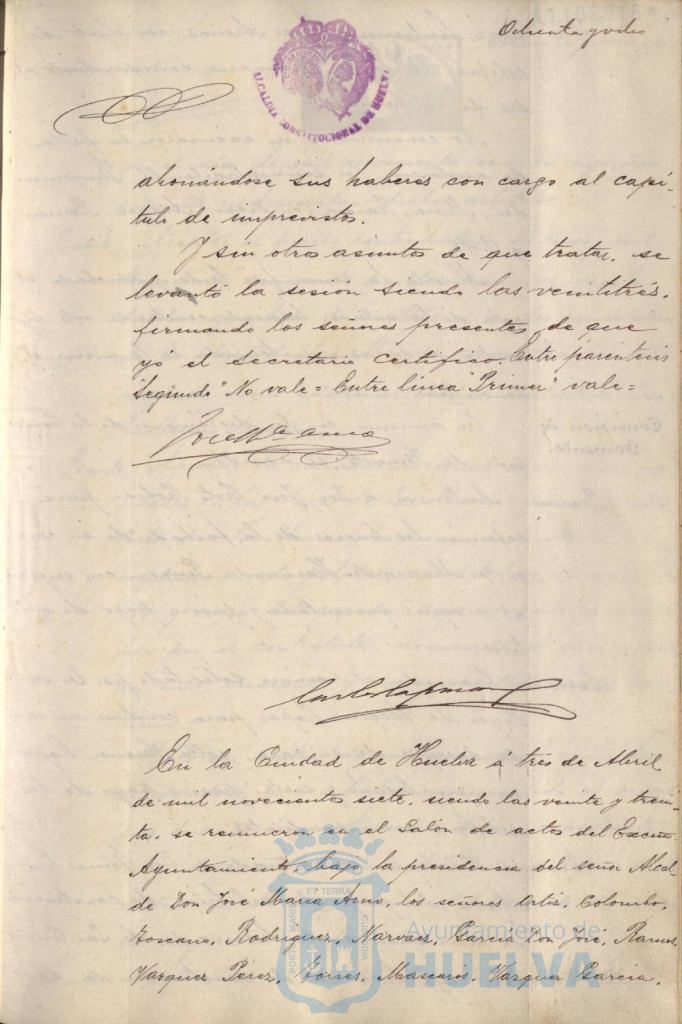 Ochenta y ocho
ALCALDIA CONSTITUCIONAL DE HUELVA
abonándose sus haberes con cargo al capí-
tulo de imprevistos.
Y sin otros asuntos de que tratar, se
levantó la sesión siendo las veintitrés,
firmando los señores presentes, de que
yó el Secretario certifico. Entre parentesis
"Segundo" No vale = Entre linea "Primer" vale =
En la Ciudad de Huelva á tres de Abril
de mil novecientos siete, siendo las veinte y trein-
ta, se reunieron en el Salón de actos del Excmo.
Ayuntamiento, bajo la presidencia del señor Alcal-
de Don José María Amo, los señores Ortiz, Colombo,
Toscano, Rodriguez, Narvaez, García Don José, Ramos,
Vazquez Perez, Torres, Mascarós, Vazquez Garcia,
Ayuntamiento de
HUELVA